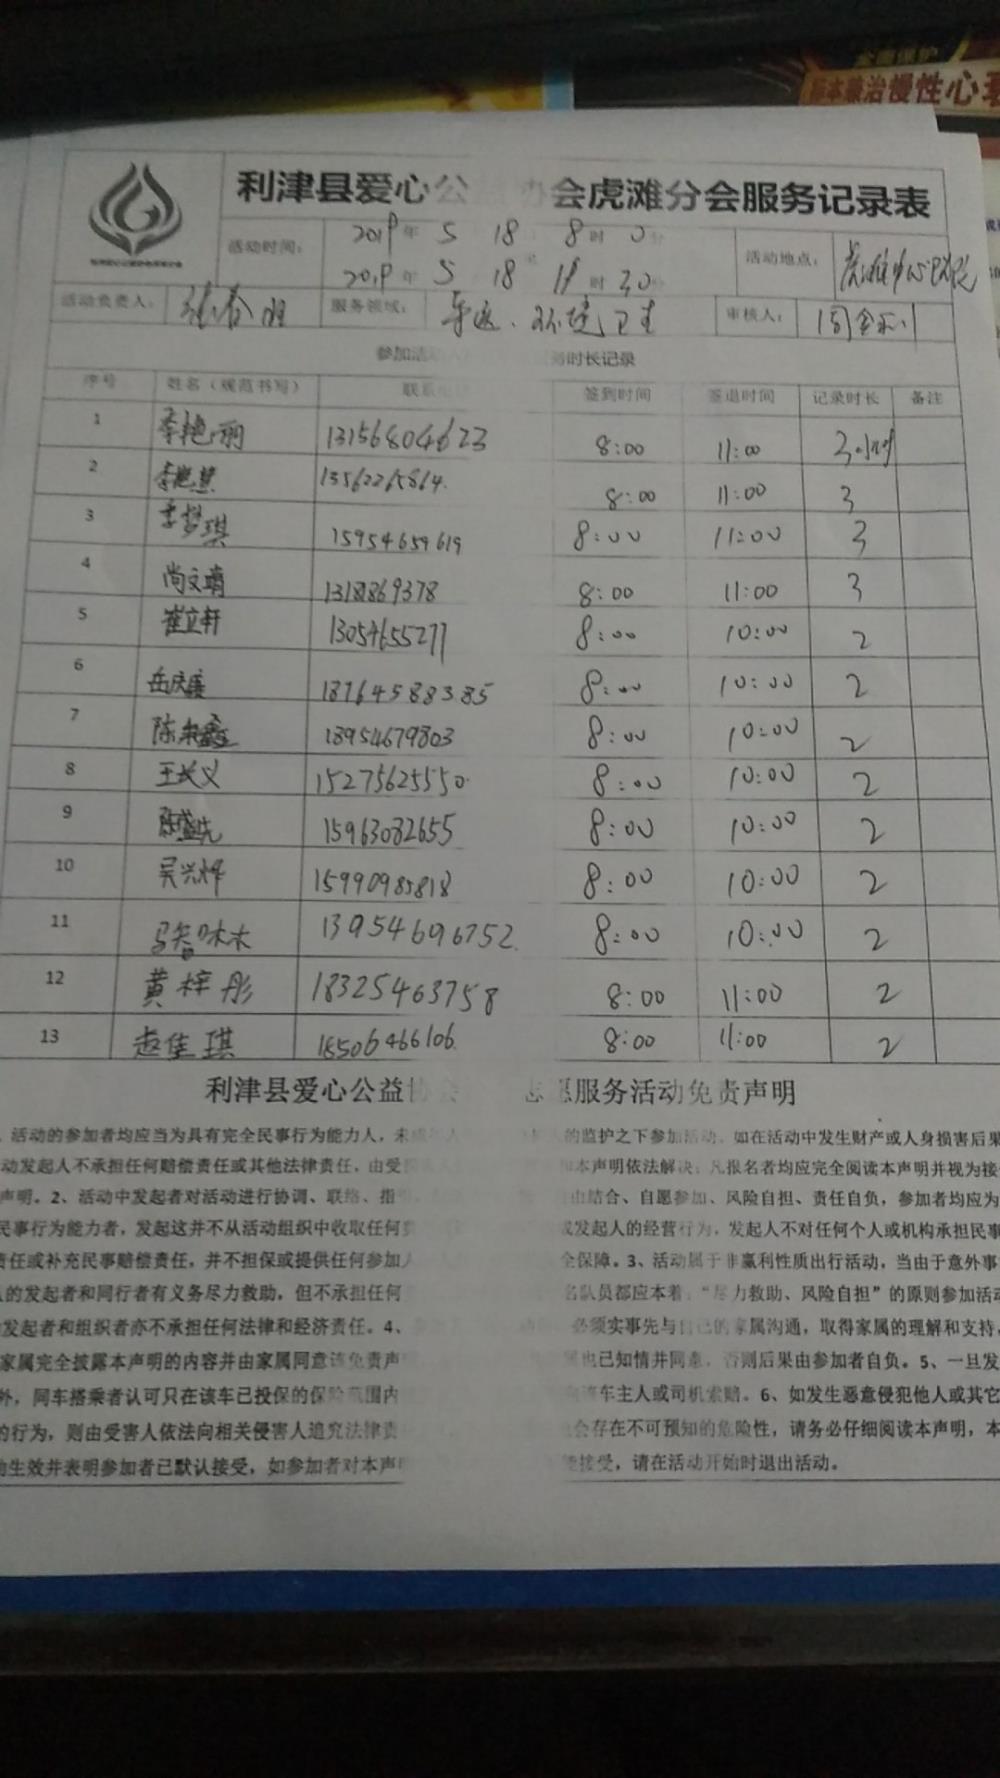 标本兼治慢性心衰
利津县爱心公益协会虎滩分会服务记录表
活动时间： 2019年 5 18 8时 0分
2019年 5 18 11时 30分
活动地点：
活动负责人： 服务领域： 环境卫生 审核人：
参加活动 时长记录
序号 姓名（规范书写） 联系 签到时间 签退时间 记录时长 备注
1 李艳丽 13156804623 8:00 11:00 3小时
2 李艳慧 8:00 11:00 3
3 李梦琪 15954659619 8:00 11:00 3
4 尚文靖 1318869378 8:00 11:00 3
5 崔立轩 13054655277 8:00 10:00 2
6 岳庆 18764588385 8:00 10:00 2
7 陈 18954679803 8:00 10:00 2
8 王长义 15275625550 8:00 10:00 2
9 陈盛先 15963082655 8:00 10:00 2
10 吴兴烨 15990985818 8:00 10:00 2
11 13954696752 8:00 10:00 2
12 黄梓彤 18325463758 8:00 11:00 2
13 赵佳琪 18506466106 8:00 11:00 2
利津县爱心公益协会 志愿服务活动免责声明
活动的参加者均应当为具有完全民事行为能力人，未成年人 的监护之下参加活动。如在活动中发生财产或人身损害后果
动发起人不承担任何赔偿责任或其他法律责任，由受 和本声明依法解决；凡报名者均应完全阅读本声明并视为接
声明。2、活动中发起者对活动进行协调、联络、指 由结合、自愿参加、风险自担、责任自负，参加者均应为
民事行为能力者，发起这并不从活动组织中收取任何 或发起人的经营行为，发起人不对任何个人或机构承担民事
责任或补充民事赔偿责任，并不担保或提供任何参加人 全保障。3、活动属于非赢利性质出行活动，当由于意外事
的发起者和同行者有义务尽力救助，但不承担任何 名队员都应本着，“尽力救助、风险自担”的原则参加活动
发起者和组织者亦不承担任何法律和经济责任。4、 必须实事先与自己的家属沟通，取得家属的理解和支持，
家属完全披露本声明的内容并由家属同意该免责声 属也已知情并同意，否则后果由参加者自负。5、一旦发
外，同车搭乘者认可只在该车已投保的保险范围内 向该车主人或司机索赔。6、如发生恶意侵犯他人或其它
的行为，则由受害人依法向相关侵害人追究法律责 会存在不可预知的危险性，请务必仔细阅读本声明，本
动生效并表明参加者已默认接受，如参加者对本声明 能接受，请在活动开始时退出活动。